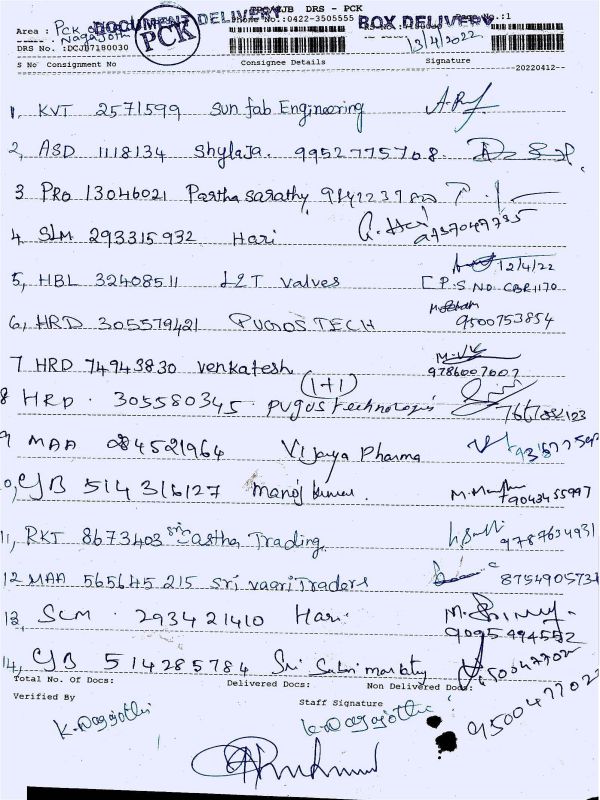 DRS - PCK
DOCUMENT DELIVERY
BOX DELIVERY
PCK
Phone No :0422-3505555
Area : Pck
Nagajothi
DRS No. :DCJB7180030
13/4/2022
S No Consignment No Consignee Details Signature
20220412
1, KVT 2571599 Sun fab Engineering
2, ASD 1118134 Shylaja. 9952775708.
3 PRO 13046021 Partha Sarathy,
4 SLM 293315932 Hari 9137049735
12/4/22
5, HBL 32408511 L&T valves C P.S NO. CBR1170
6, HRD 305579421 PUGOS TECH 9500753854
7 HRD 74943830 venkatesh 9786007007
(1+1)
8 HRD. 305580345. pugus technologis
9 MAA 084521964 Vijaya Pharma
10, CJB 514316127 Manoj kumar. 9043455997
11, RKT 8673403 Sri Aastha Trading. 9787634931
12 MAA 565645215 Sri vaari Traders 875490573
13, SLM. 293421410 Hari. 9095494552
14, CJB 514285784 Sri
Total No. Of Docs: Delivered Docs: Non Delivered Docs:
Verified By Staff Signature
K. Nagajothi K. Nagajothi
9500477022